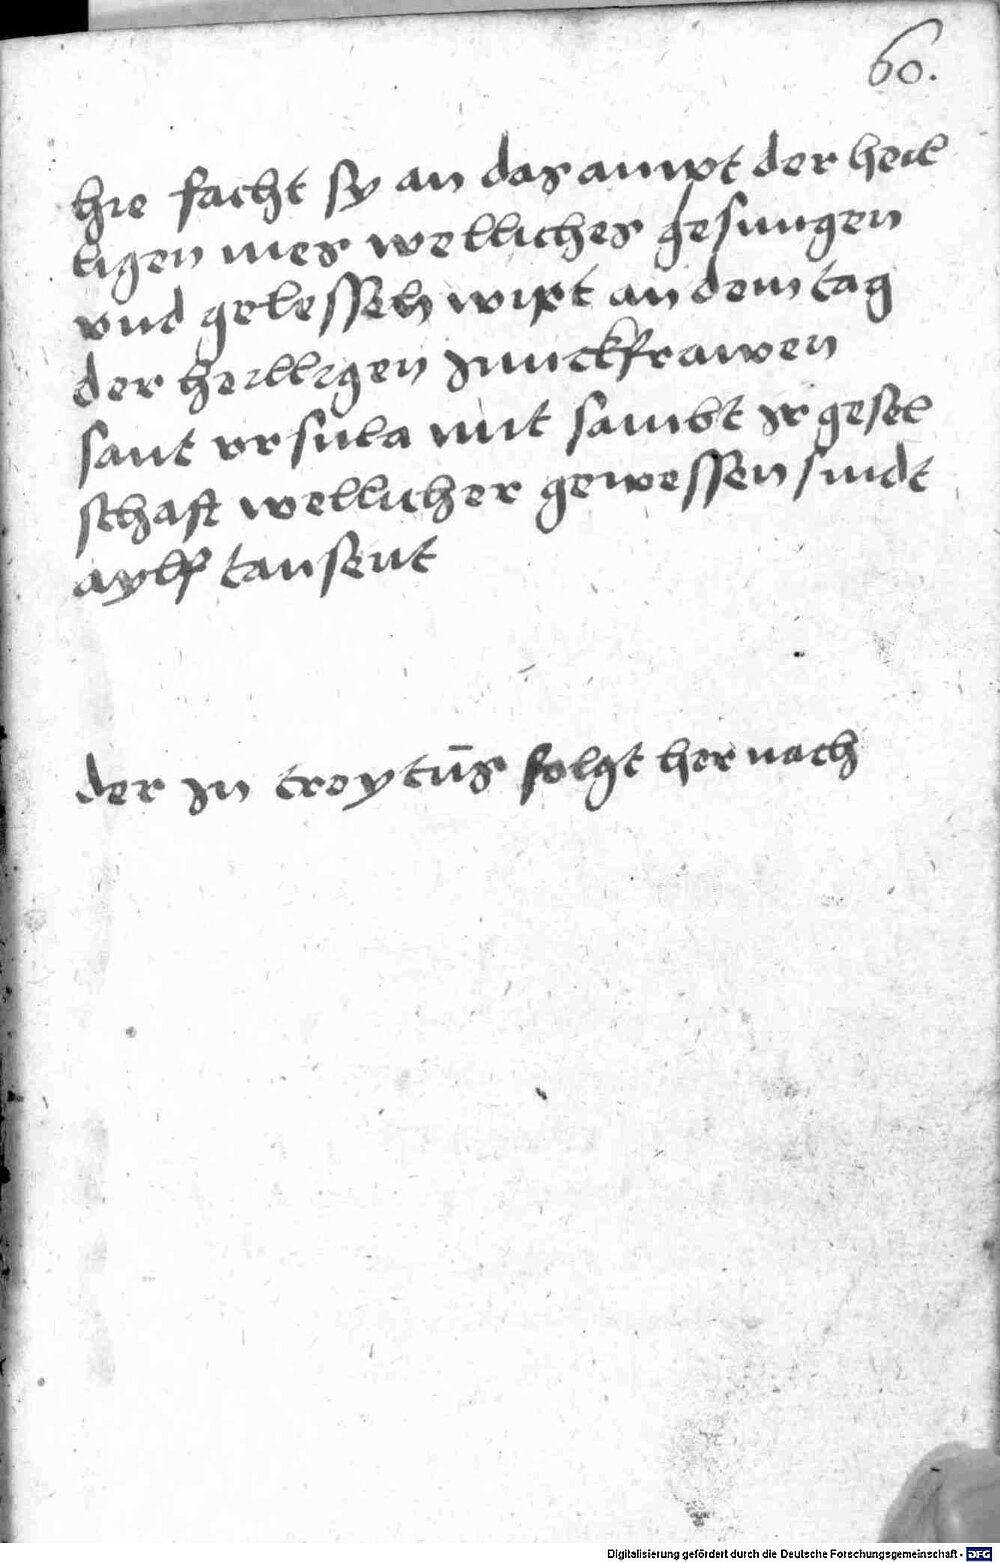 60.
hie facht sy an das ampt der heil
ligen mes welliches gesungen
vnd gelessen wirt an dem tag
der heilligen Junckfrawen
sant vrsula mit sambt Ir gesel
schaft wellicher gewessen sindt
aylf tausent
der In troytūs folgt her nach
Digitalisierung gefördert durch die Deutsche Forschungsgemeinschaft - DFG